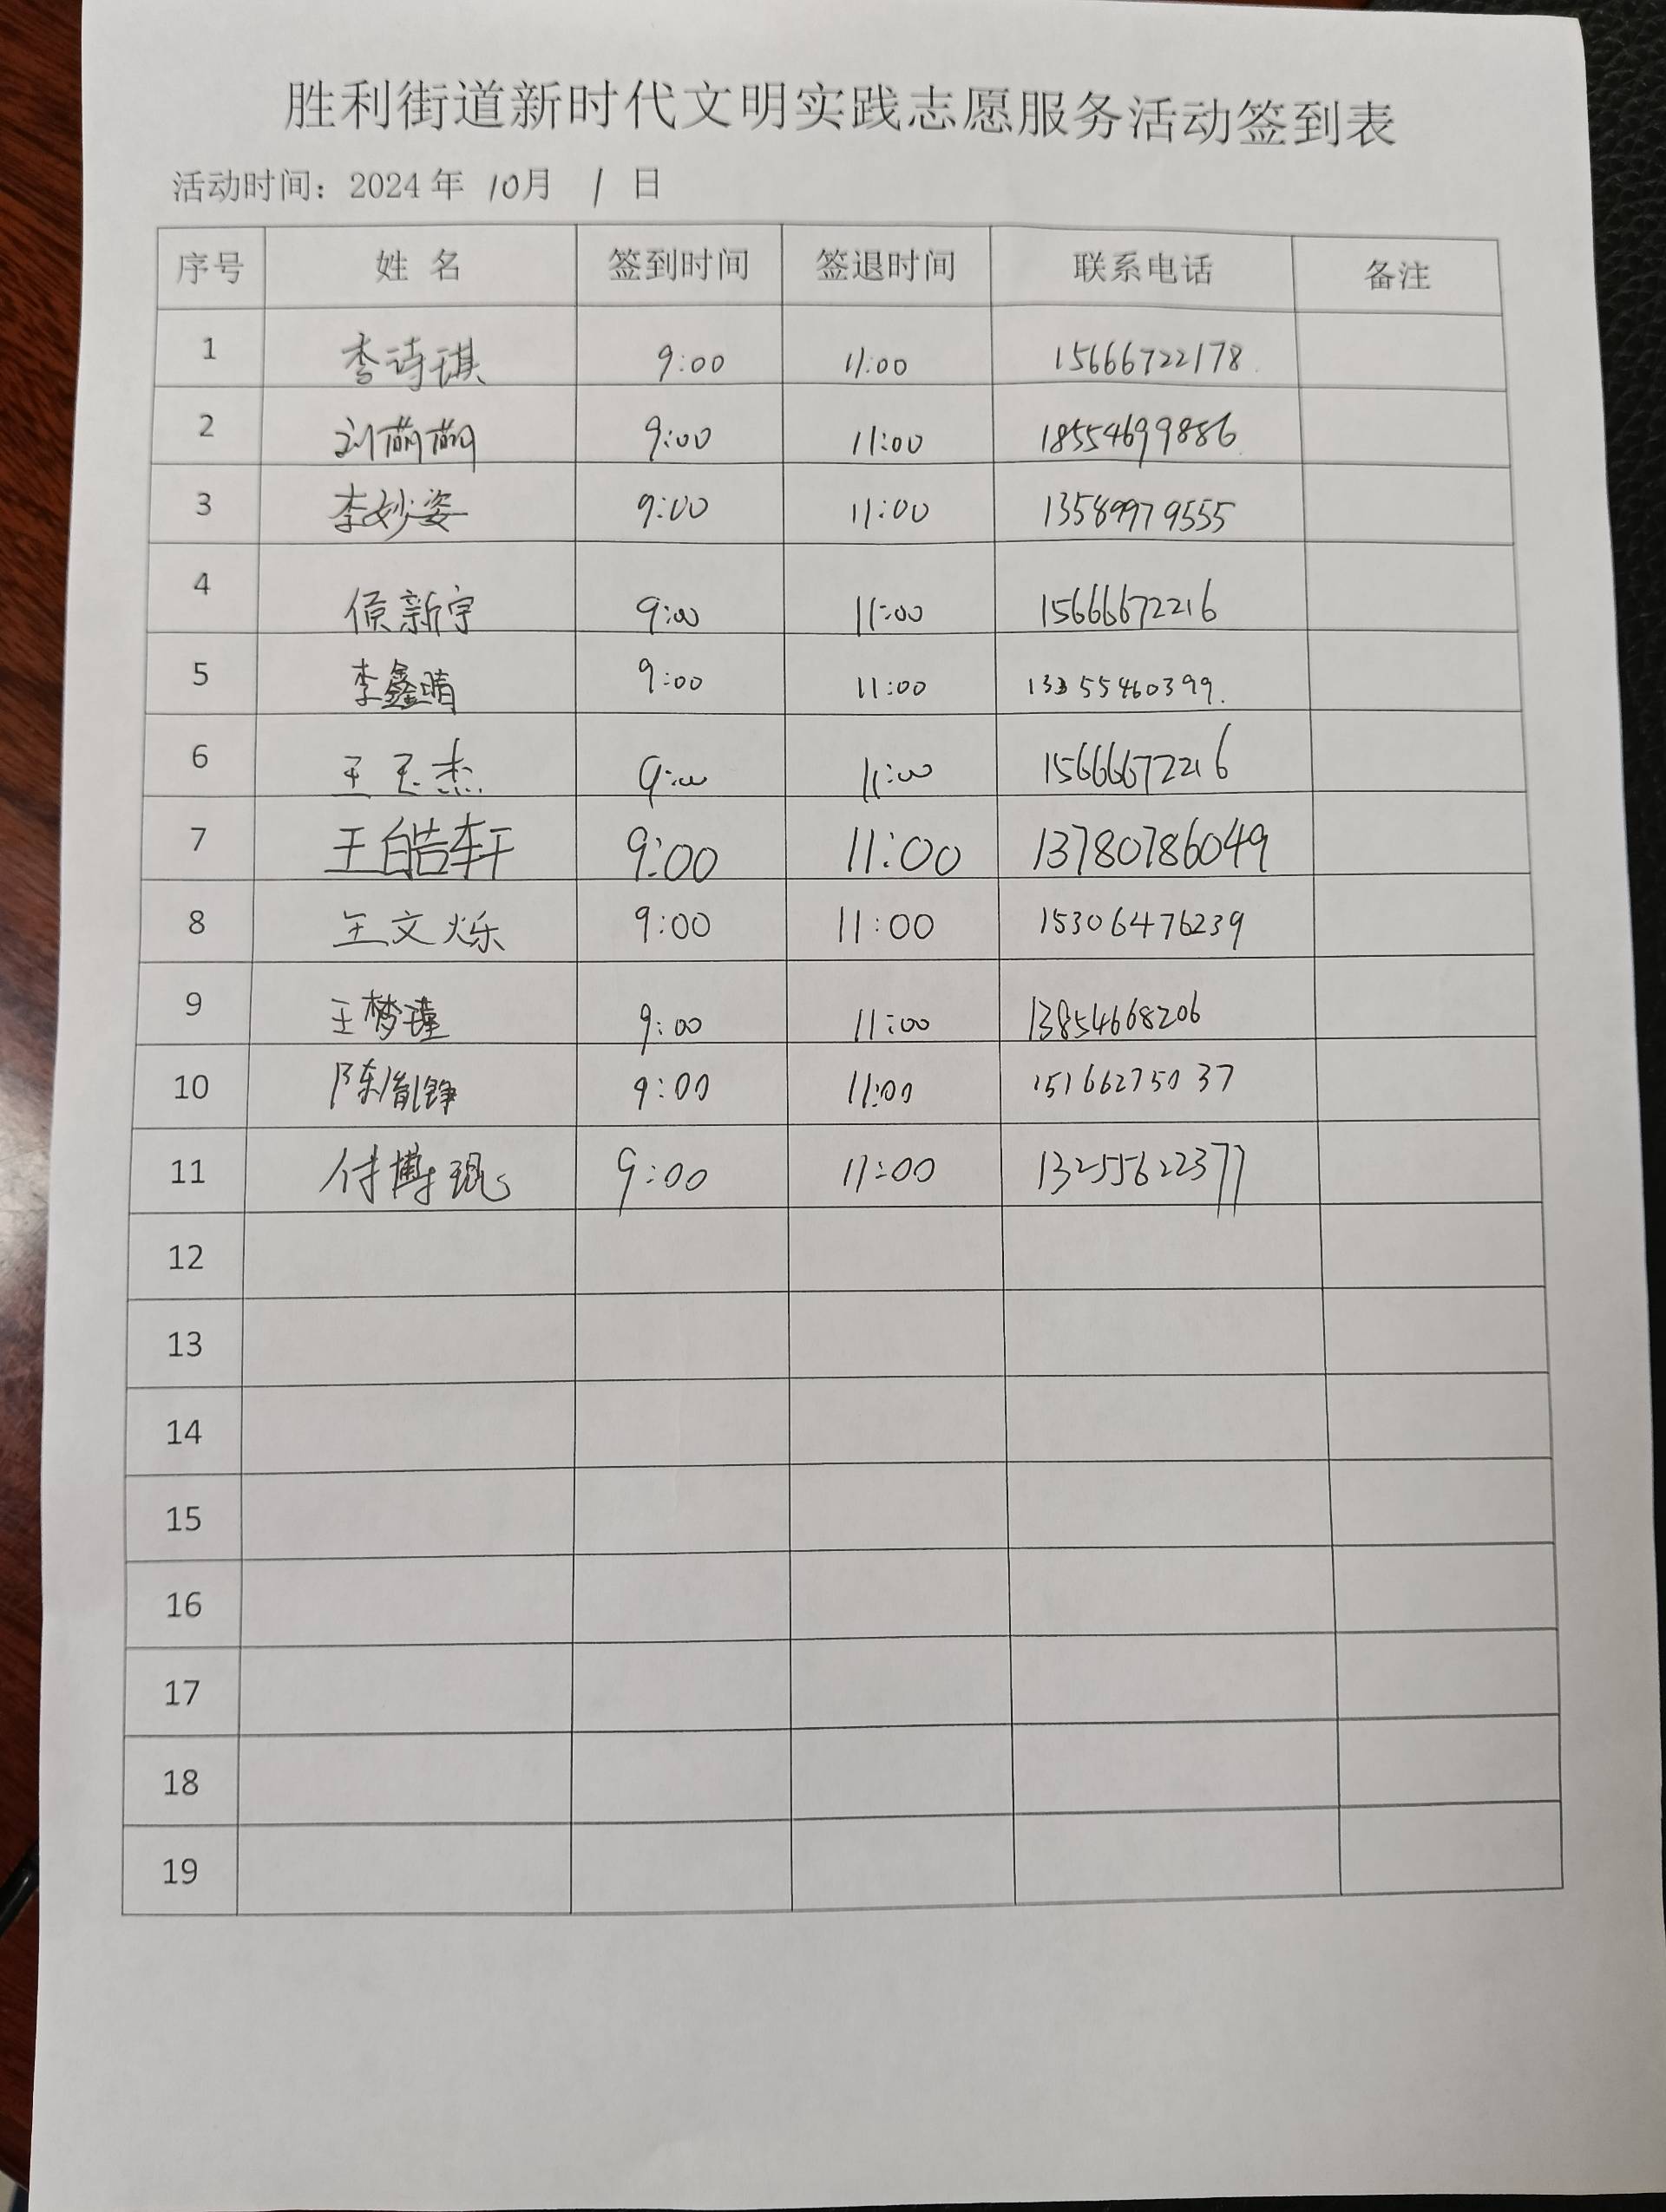 胜利街道新时代文明实践志愿服务活动签到表
活动时间：2024年 10月 1 日
序号 姓 名 签到时间 签退时间 联系电话 备注
1 李诗琪 9:00 11:00 15666722178
2 刘萌萌 9:00 11:00 18554699886
3 李妙姿 9:00 11:00 13589979555
4 侯新宇 9:00 11:00 15666672216
5 李鑫晴 9:00 11:00 13355460399.
6 王玉杰 9:00 11:00 15666672216
7 王皓轩 9:00 11:00 13780786049
8 王文烁 9:00 11:00 15306476239
9 王梦瑾 9:00 11:00 13854668206
10 陈胤铮 9:00 11:00 15166275037
11 付博琨 9:00 11:00 13255622377
12
13
14
15
16
17
18
19